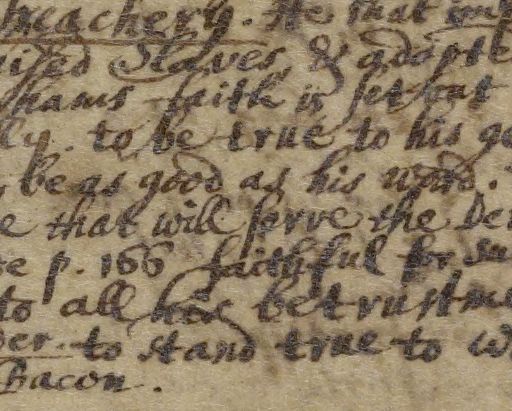 treachery. He that
Slaves, & adopte
hams faith is set out
ly. to be true to his
be as good as his word.
e that will serve the De
p. 166 faithful for
to all her betrustm
to stand true to
Bacon.